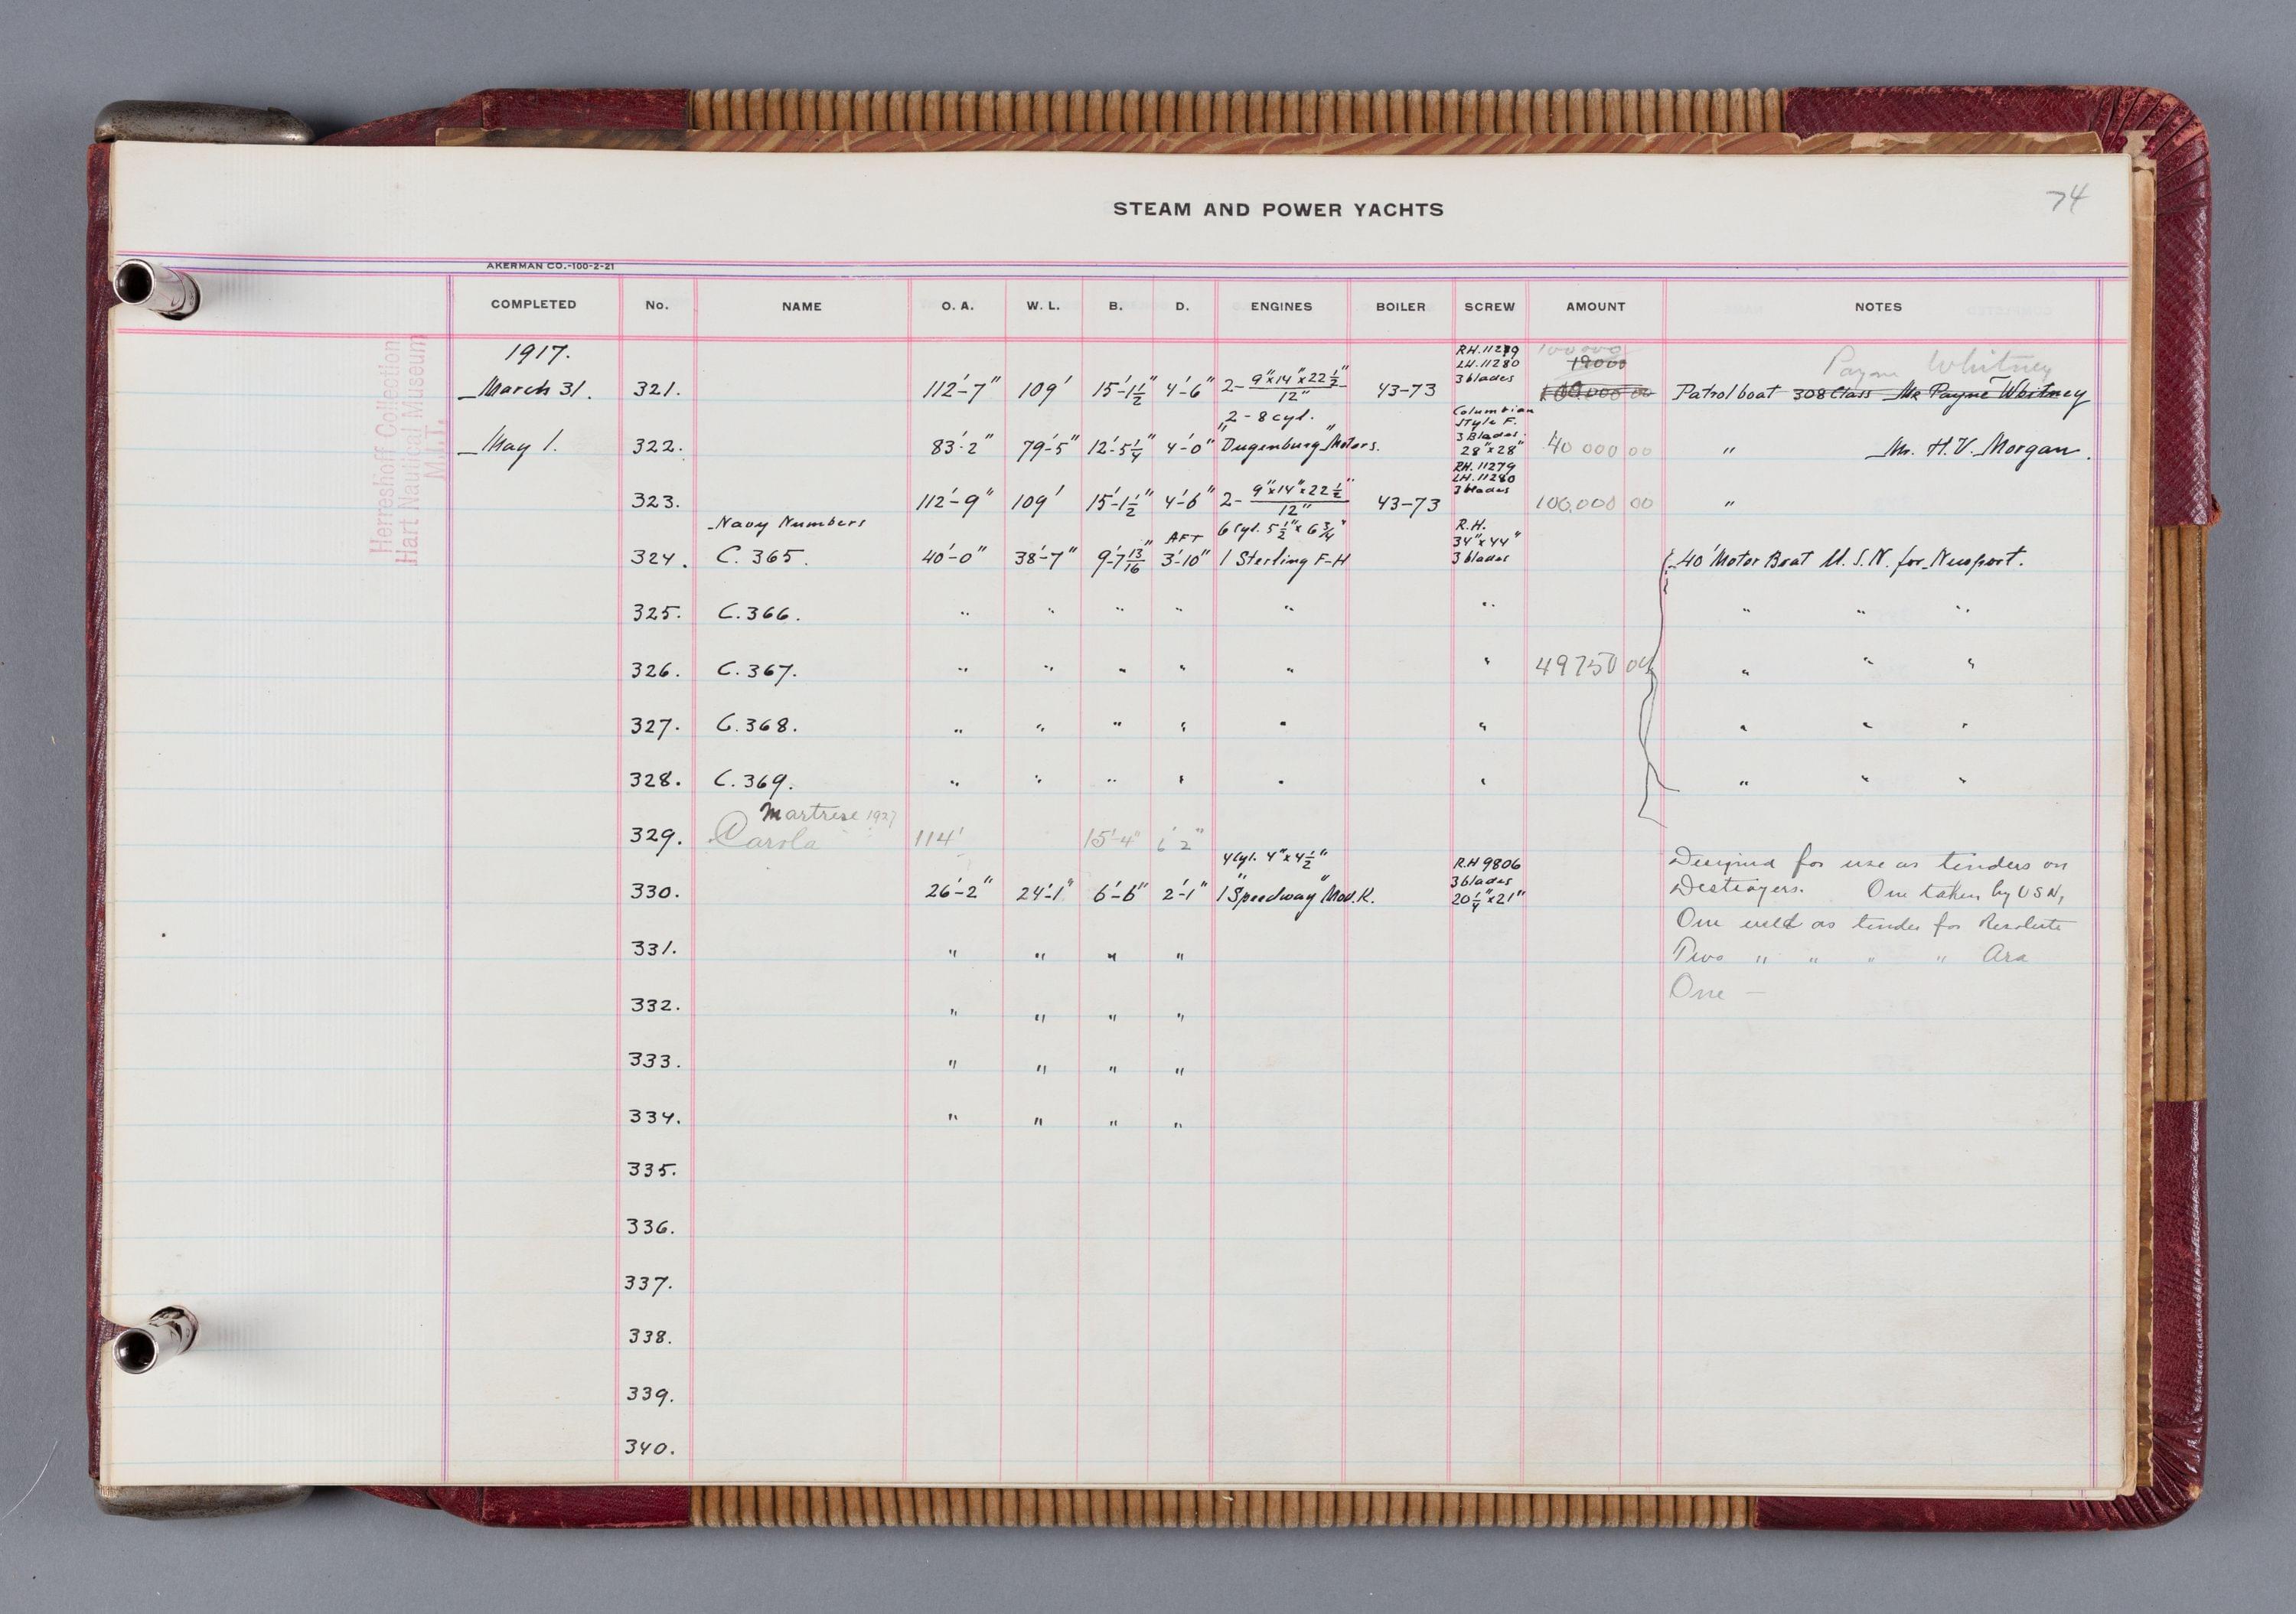 STEAM AND POWER YACHTS
74
AKERMAN CO.-100-2-21
COMPLETED No. NAME O. A. W. L. B. D. ENGINES BOILER SCREW AMOUNT NOTES
Herreshoff Collection
Hart Nautical Museum
M.I.T.
1917. RH.11279 100000
LH.11280 19000 Payne Whitney
3 blades
March 31. 321. 112'-7" 109' 15'-1 1/2" 4'-6" 2- 9"x14"x22 1/2" 43-73 100.000 00 Patrol boat 308 Class Mr Payne Whitney
12"
2-8 cyl. Columbian
Style F.
3 Blades.
May 1. 322. 83'-2" 79'-5" 12'-5 1/4" 4'-0" "Dugenburg" Motors. 28"x28" 40 000 00 " Mr. H.V. Morgan.
RH.11279
LH.11280
3 blades
323. 112'-9" 109' 15'-1 1/2" 4'-6" 2- 9"x14"x22 1/2" 43-73 100,000 00 "
12"
Navy Numbers AFT 6 Cyl. 5 1/2" x 6 3/4" R.H.
34"x44"
324. C. 365. 40'-0" 38'-7" 9'-7 13/16" 3'-10" 1 Sterling F-H 3 blades 40' Motor Boat U.S.N. for Newport.
325. C. 366. " " " " " " " " "
326. C. 367. " " " " " " 49750 00 " " "
327. C. 368. " " " " " " " " "
328. C. 369. " " " " " " " " "
Martrese 1927
329. Carola 114' 15'-4" 6' 2"
4 Cyl. 4"x4 1/2" RH 9806 Designed for use as tenders on
3 blades
330. 26'-2" 24'-1" 6'-6" 2'-1" 1 "Speedway" Mod. K. 20 1/4"x21" Destroyers. One taken by USN,
One sold as tender for Resolute
331. " " " " Two " " " " Ara
One —
332. " " " "
333. " " " "
334. " " " "
335.
336.
337.
338.
339.
340.